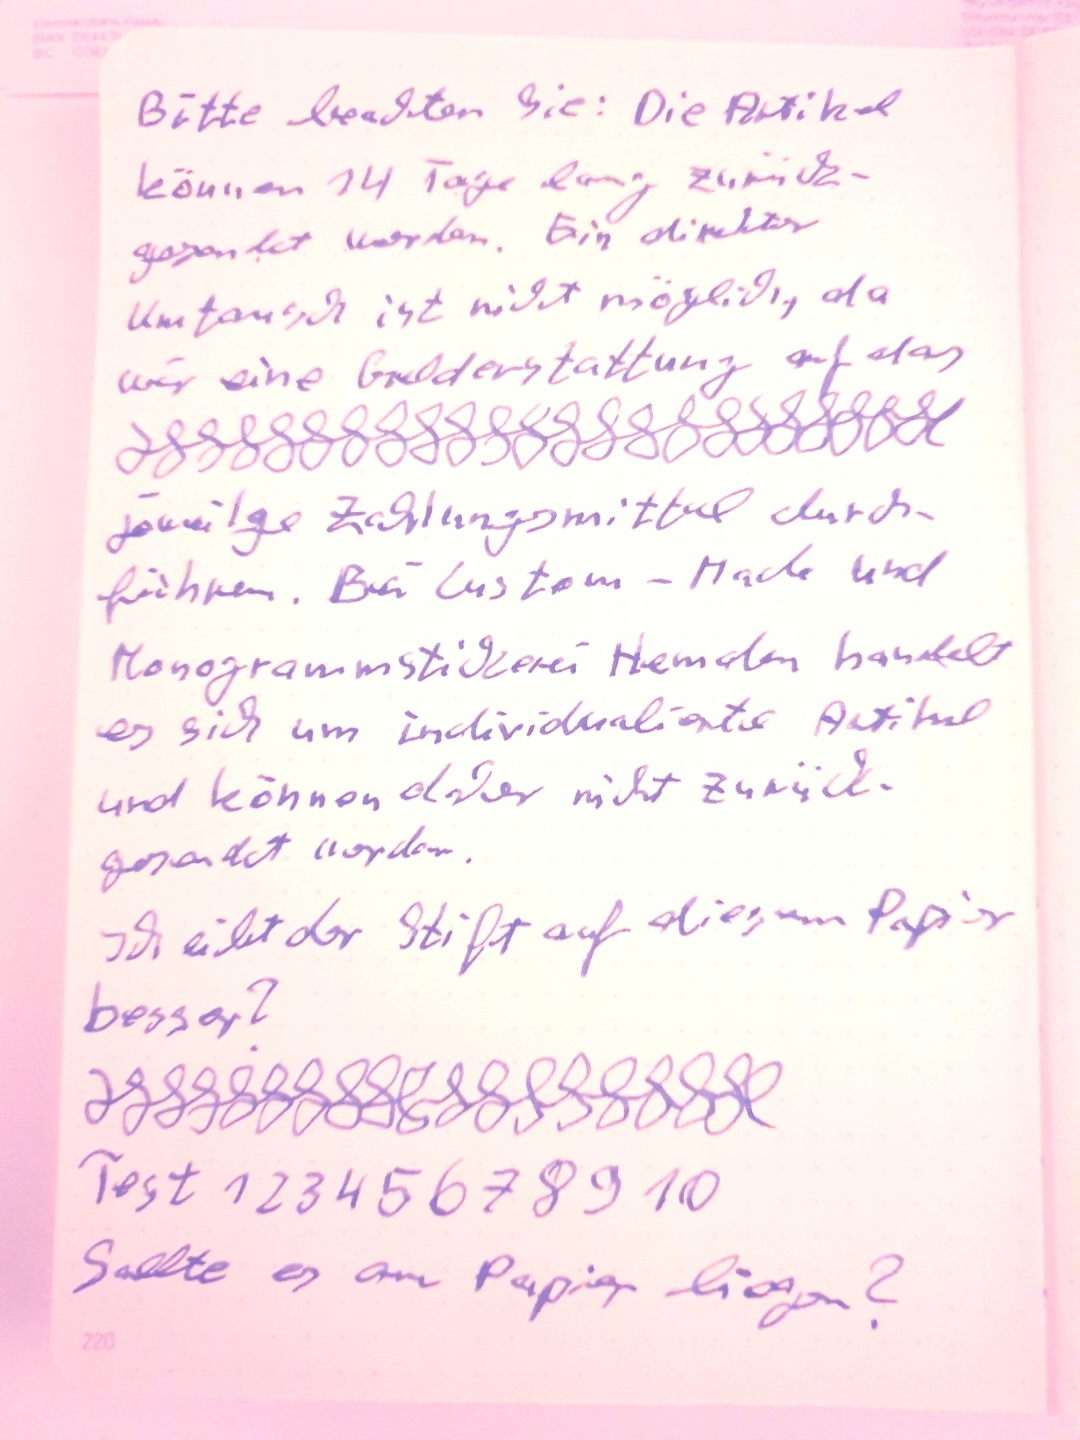 Commerzbank
IBAN
BIC
Bitte beachten Sie: Die Artikel
können 14 Tage lang zurück-
gesendet werden. Ein direkter
Umtausch ist nicht möglich, da
wir eine Gelderstattung auf das
jeweilge Zahlungsmittel durch-
führen. Bei Custom-Made und
Monogrammstickerei Hemden handelt
es sich um individualierte Artikel
und können daher nicht zurück-
gesendet werden.
der Stift auf diesem Papier
besser?
Test 1 2 3 4 5 6 7 8 9 10
Sollte es am Papier liegen?
220